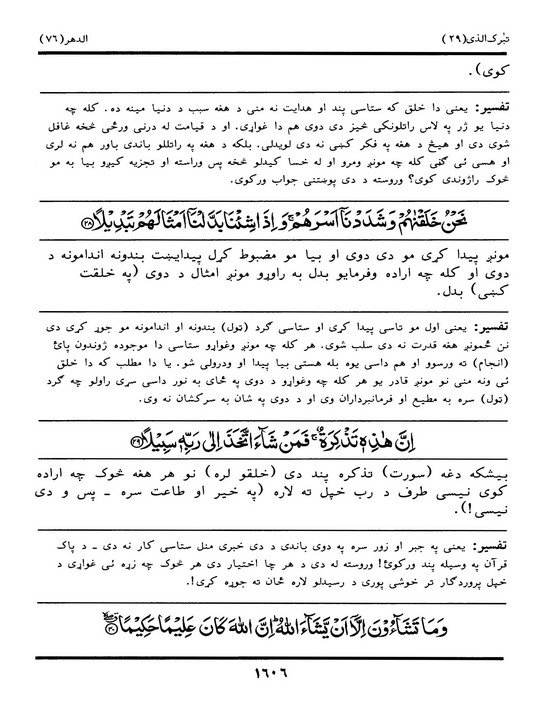 تبٰرك الذى(٢٩) الدهر(٧٦)
كوى).
تفسير: يعنى دا خلق كه ستاسى پند او هدايت نه منى د هغه سبب د دنيا مينه ده. كله چه
دنيا يو ژر په لاس راتلونكى څيز دى دوى هم دا غواړى. او د قيامت له درنى ورځى څخه غافل
شوى دى او هيڅ د هغه په فكر كښى نه دى لويدلى. بلكه د هغه په راتللو باندى باور هم نه لرى
او هسى ئى گڼى كله چه مونږ ومرو او له خسا كيدلو څخه پس وراسته او تجزيه كيږو بيا به مو
څوک راژوندى كوى؟ وروسته د دى پوښتنى جواب وركوى.
نَحْنُ خَلَقْنٰهُمْ وَشَدَدْنَآ اَسْرَهُمْ ۚ وَاِذَا شِئْنَا بَدَّلْنَآ اَمْثَالَهُمْ تَبْدِيْلًا ﴿٢٨﴾
مونږ پيدا كړى مو دى دوى او بيا مو مضبوط كړل پيدايښت بندونه اندامونه د
دوى او كله چه اراده وفرمايو بدل به راوړو مونږ امثال د دوى (په خلقت
كښى) بدل.
تفسير: يعنى اول مو تاسى پيدا كړى او ستاسى گرد (تول) بندونه او اندامونه مو جوړ كړى دى
نن ځمونږ هغه قدرت نه دى سلب شوى. هر كله چه مونږ وغواړو ستاسى دا موجوده ژوندون پائ
(انجام) ته ورسوو او هم داسى يوه بله هستى بيا پيدا او ودرولى شو. يا دا مطلب كه دا خلق
ئى ونه منى نو مونږ قادر يو هر كله چه وغواړو د دوى په ځاى به نور داسى سړى راولو چه گرد
(تول) سره به مطيع او فرمانبرداران وى او د دوى په شان به سركشان نه وى.
اِنَّ هٰذِهٖ تَذْكِرَةٌ ۚ فَمَنْ شَآءَ اتَّخَذَ اِلٰى رَبِّهٖ سَبِيْلًا ﴿٢٩﴾
بيشكه دغه (سورت) تذكره پند دى (خلقو لره) نو هر هغه څوک چه اراده
كوى نيسى طرف د رب خپل ته لاره (په خير او طاعت سره ـ پس و دى
نيسى!).
تفسير: يعنى په جبر او زور سره په دوى باندى د دى خبرى منل ستاسى كار نه دى ـ د پاک
قرآن په وسيله پند وركوئ! وروسته له دى د هر چا اختيار دى هر څوک چه زړه ئى غواړى د
خپل پروردگار تر خوشى پورى د رسيدلو لاره ځان ته جوړه كړى!.
وَمَا تَشَآءُوْنَ اِلَّآ اَنْ يَّشَآءَ اللّٰهُ ؕ اِنَّ اللّٰهَ كَانَ عَلِيْمًا حَكِيْمًا ﴿٣٠﴾
١٦٠٦